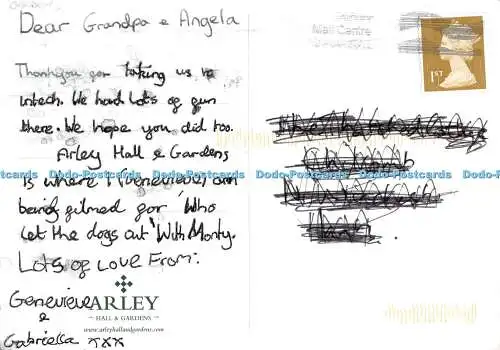 Dear Grandpa & Angela
Mail Centre
1ST
Thankyou for taking us to
Intech. We had lots of fun
there. We hope you did too.
Arley Hall & Gardens
Is where I (Genevieve) am
being filmed for 'Who
let the dogs out' With Monty.
Lots of Love From:
Genevieve
&
Gabriella xxx
ARLEY
HALL & GARDENS
www.arleyhallandgardens.com
Dodo-Postcards Dodo-Postcards Dodo-Postcards Dodo-Postcards Dodo-Postcards